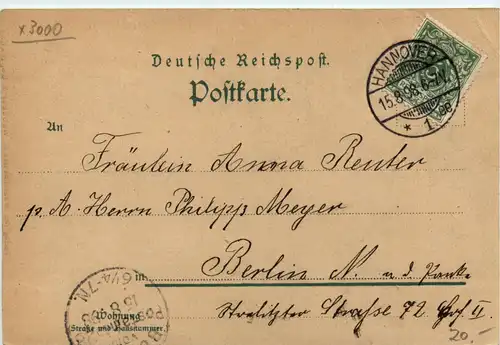 x 3000
Deutsche Reichspost.
Postkarte.
HANNOVER
15.8.98.6-7N.
* 1.
An
Fräulein Anna Reuter
p. A. Herrn Philipp Meyer
in
Berlin N. a. d. Panke
Wohnung
(Straße und Hausnummer)
Strelitzter Straße 72 Hof II
20.-